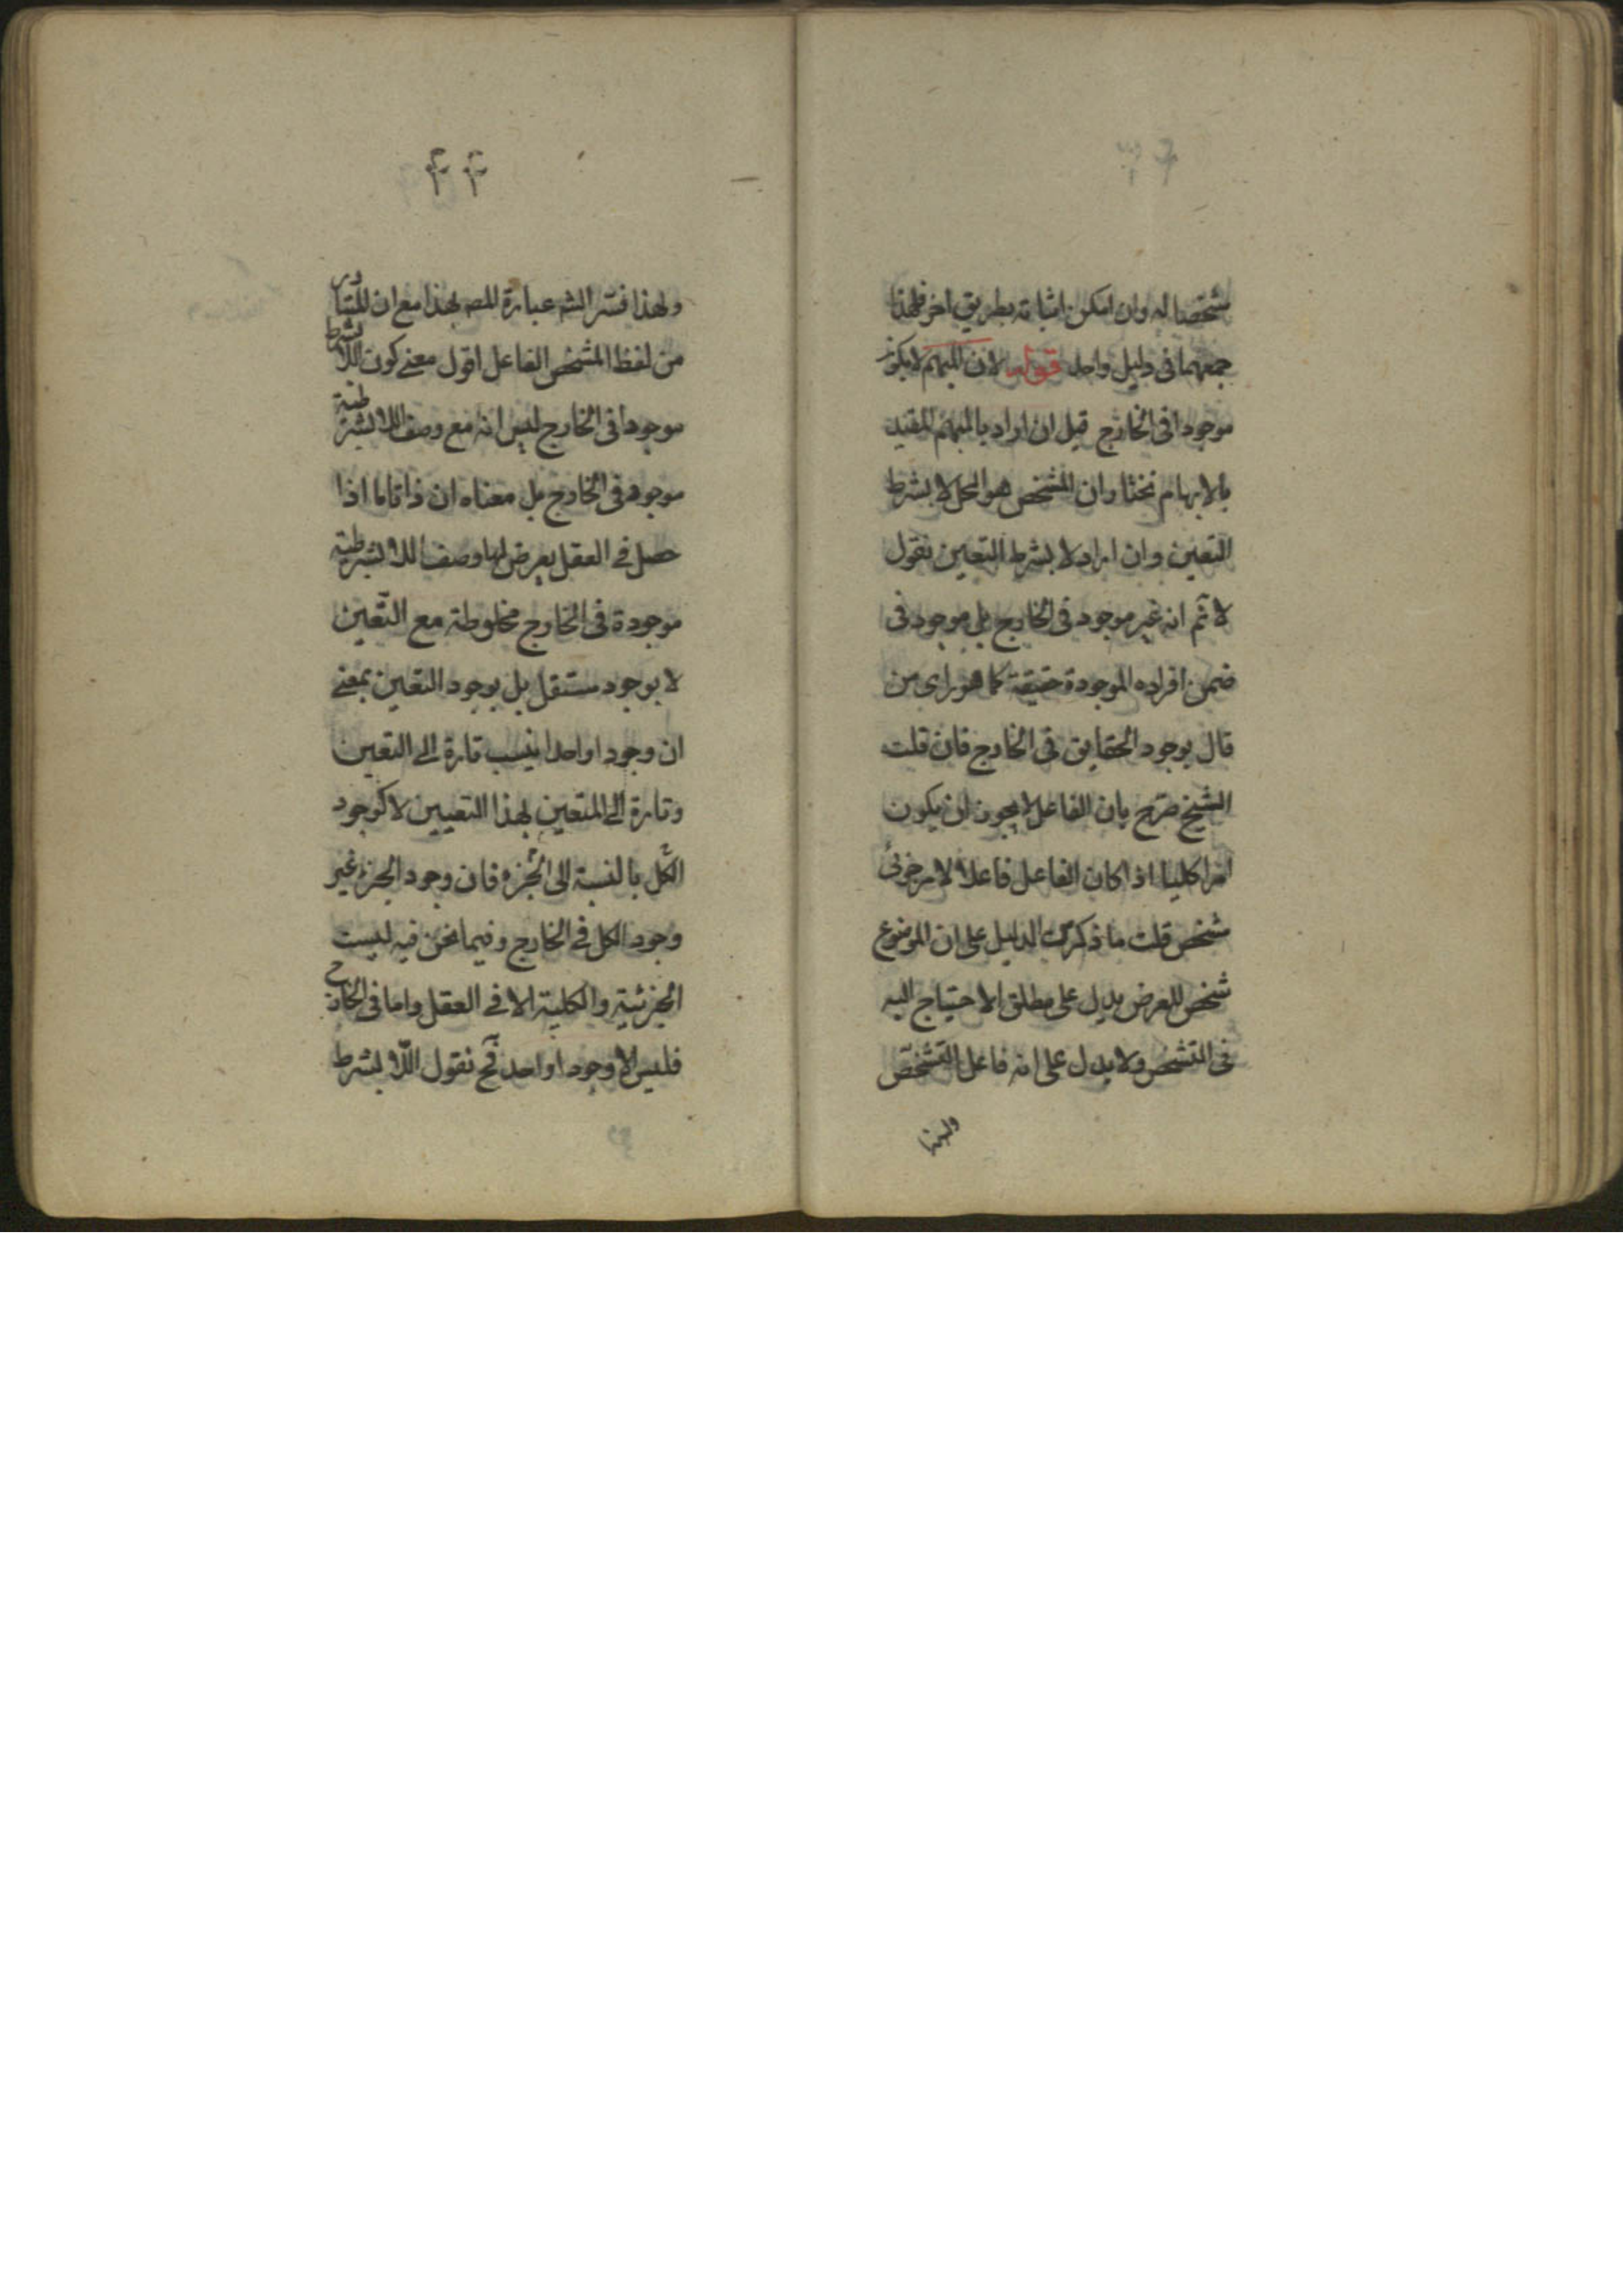 مشخصا له وان امكن اثباته بطريق اخر فلهذا
جمعهما فى دليل واحد قوله لان المبهم لا يكون
موجودا فى الخارج قيل ان اراد بالمبهم المقيد
بالابهام نختار ان المشخص هو المحل لا بشرط
التعين وان اراد لا بشرط التعين نقول
لا نم انه غير موجود فى الخارج بل موجود فى
ضمن افراده الموجودة حقيقة كما هو راى من
قال بوجود الحقايق فى الخارج فان قلت
الشيخ صرح بان الفاعل لا يجوز ان يكون
امرا كليا اذا كان الفاعل فاعلا لامر جزئى
شخص قلت ما ذكرت الدليل على ان الموضوع
شخص للعرض يدل على مطلق الاحتياج اليه
فى التشخص ولا يدل على انه فاعل التشخص
ولهذا
٤٤
ولهذا فسر الشه عبارة المصه لهذا مع ان المتبادر
من لفظ المشخص الفاعل اقول معنى كون اللا بشرط
موجودا فى الخارج ليس انه مع وصف اللا بشرطية
موجود فى الخارج بل معناه ان ذاتا ما اذا
حصل فى العقل يعرض لها وصف اللا بشرطية
موجودة فى الخارج مخلوطة مع التعين
لا بوجود مستقل بل بوجود التعين بمعنى
ان وجودا واحدا ينسب تارة الى التعين
وتارة الى المتعين بهذا التعيين لا كوجود
الكل بالنسبة الى الجزء فان وجود الجزء غير
وجود الكل فى الخارج وفيما نحن فيه ليست
الجزئية والكلية الا فى العقل واما فى الخارج
فليس الا وجودا واحد فح نقول اللا بشرط